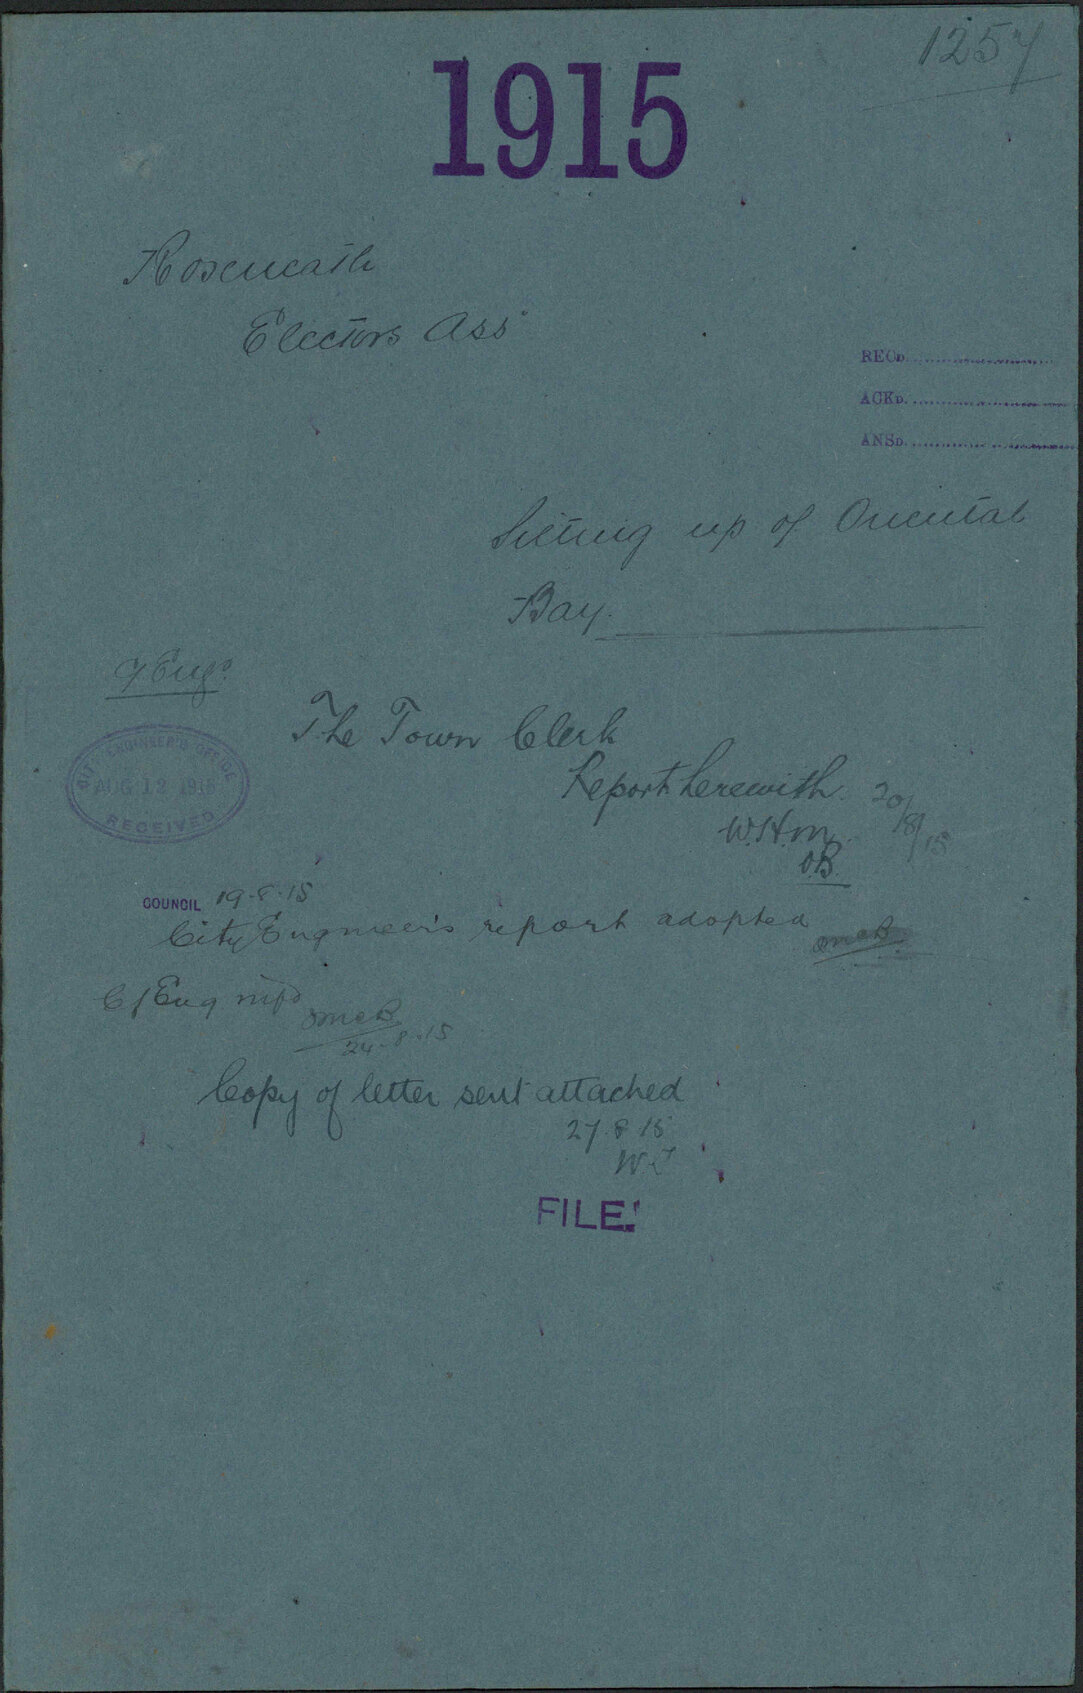 1257
1915
Roseneath
Electors Ass
RECD.
ACKD.
ANSD.
Silting up of Oriental
Bay.
C/Engr
The Town Clerk
Report herewith. 20/8/15
W.H.M.
O.B.
CITY ENGINEER'S OFFICE
AUG 12 1915
RECEIVED
COUNCIL 19-8-15
City Engineer's report adopted
JMcB
C/Eng nifd
JMcB
24-8-15
Copy of letter sent attached
27.8.15
FILE.